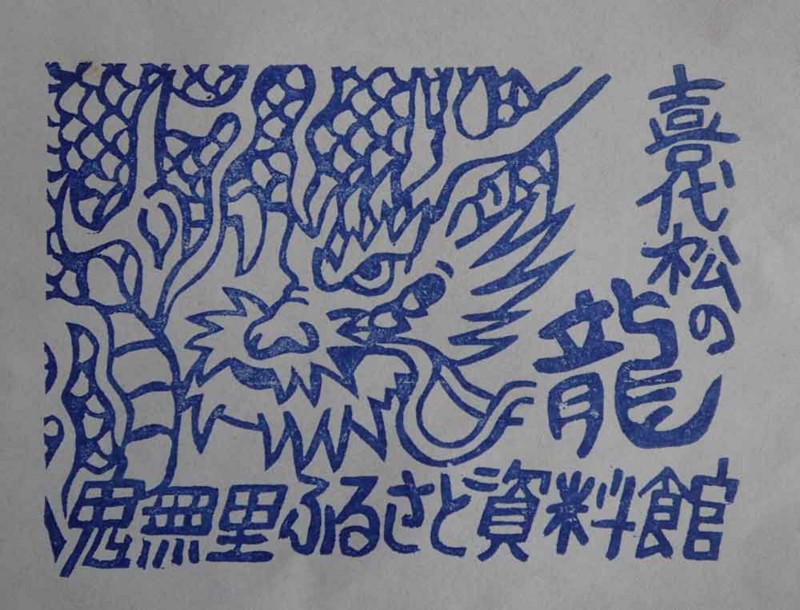 喜代松の
龍
鬼無里ふるさと資料館